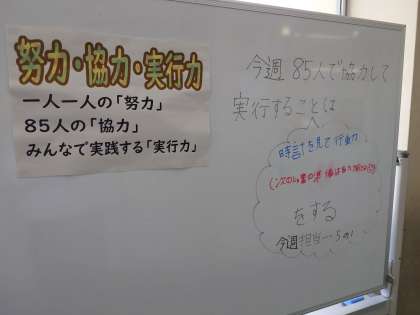 努力・協力・実行力
一人一人の「努力」
85人の「協力」
みんなで実践する「実行力」
今週 85人で協力して
実行することは
時計を見て行動
をする
今週担当…5の1